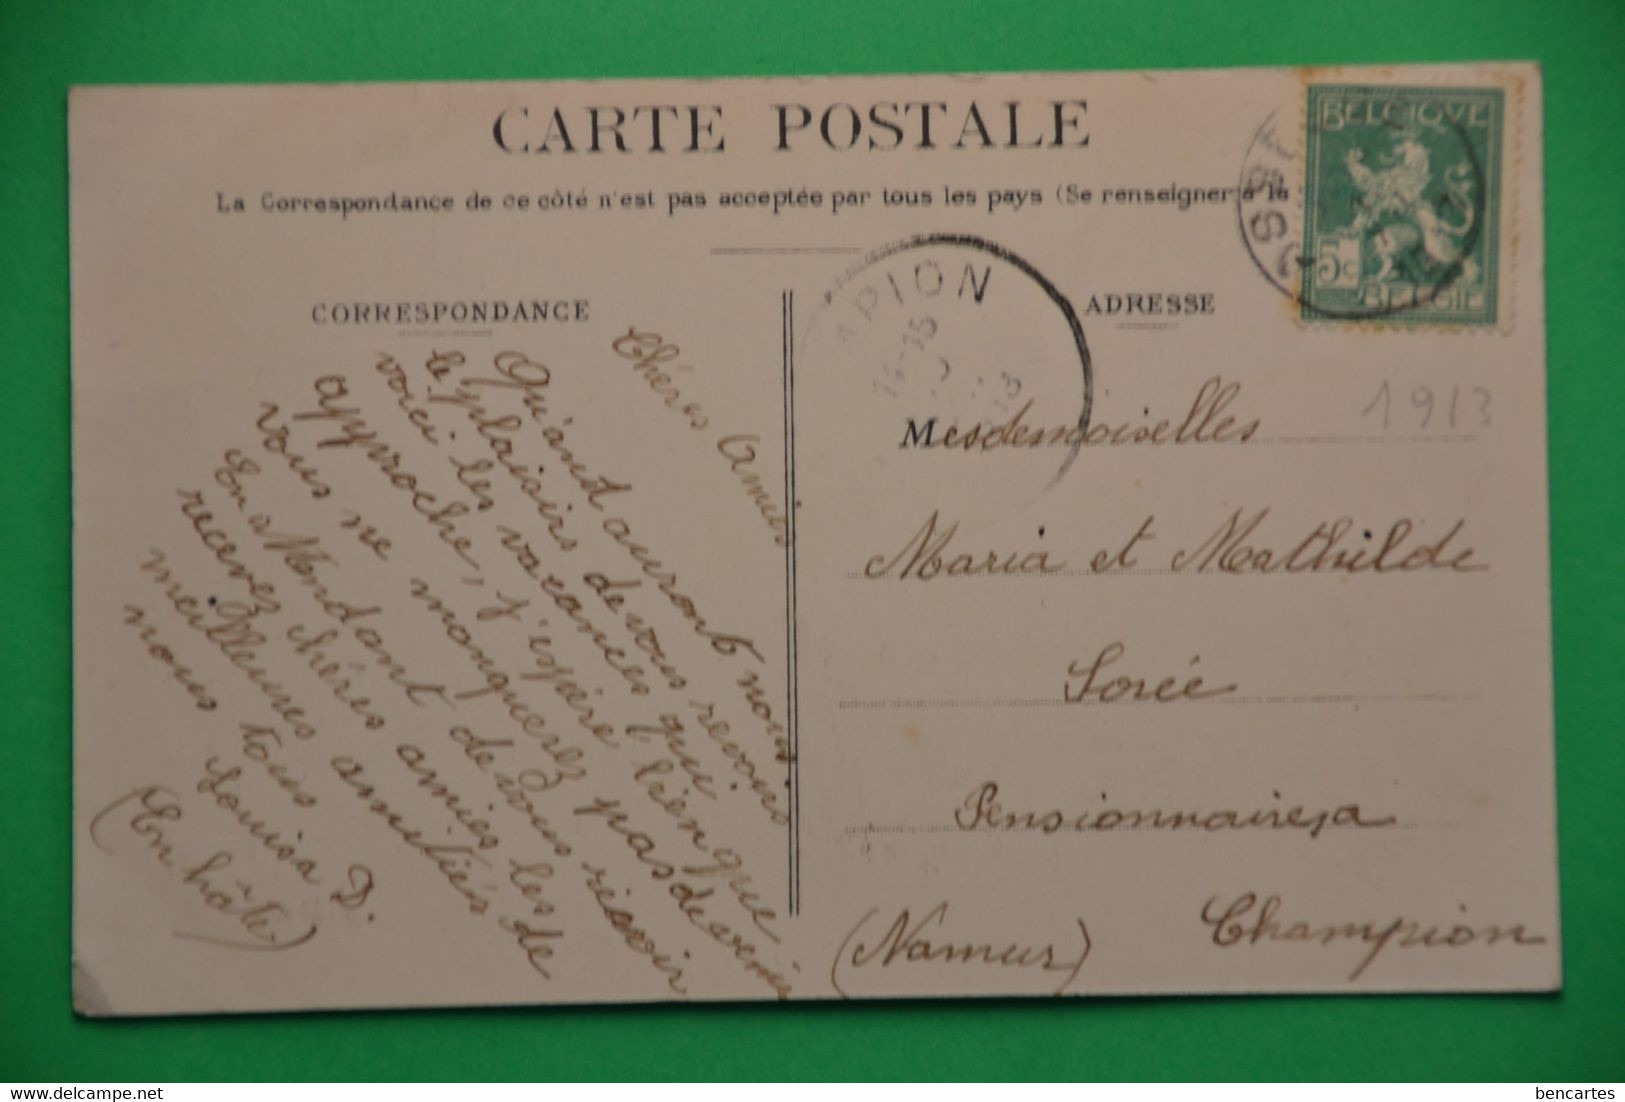 CARTE POSTALE
La Correspondance de ce côté n'est pas acceptée par tous les pays (Se renseigner à la
CORRESPONDANCE
Chéres Amies
Qu'and auront nous
le plaisirs de vous revoirs
voici les vacances qui
approche, j'espère bien que
vous ne manquerez pas de venir
En attendant de vous
recevez chéres amies les
meilleures amitiés de
nous tous
Louisa D.
(En hâte)
ADRESSE
BELGIQUE
5c
BELGIË
PION
14-15
1913
Mesdemoiselles
Maria et Mathilde
Sorée
Pensionnaires, a
Champion
(Namur)
delcampe.net
bencartes